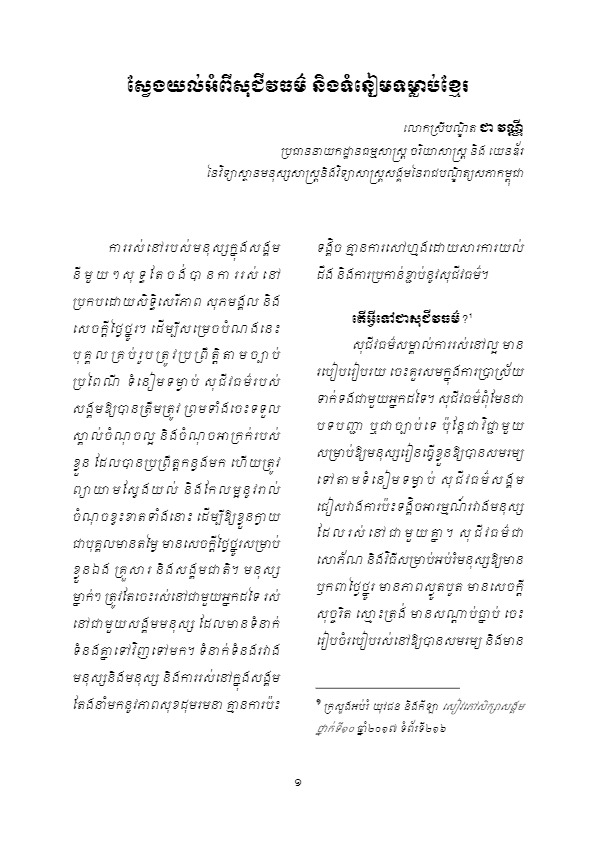 ស្វែងយល់អំពីសុជីវធម៌ និងទំនៀមទម្លាប់ខ្មែរ
លោកស្រីបណ្ឌិត ជា វណ្ណី
ប្រធាននាយកដ្ឋានធម្មសាស្ត្រ ចរិយាសាស្ត្រ និង យេនឌ័រ
នៃវិទ្យាស្ថានមនុស្សសាស្ត្រនិងវិទ្យាសាស្ត្រសង្គមនៃរាជបណ្ឌិត្យសភាកម្ពុជា
ការរស់នៅរបស់មនុស្សក្នុងសង្គម
នីមួយៗសុទ្ធតែចង់បានការរស់នៅ
ប្រកបដោយសិទ្ធិសេរីភាព សុភមង្គល និង
សេចក្តីថ្លៃថ្នូរ។ ដើម្បីសម្រេចបំណងនេះ
បុគ្គលគ្រប់រូបត្រូវប្រព្រឹត្តិតាមច្បាប់
ប្រពៃណី ទំនៀមទម្លាប់ សុជីវធម៌របស់
សង្គមឱ្យបានត្រឹមត្រូវ ព្រមទាំងចេះទទួល
ស្គាល់ចំណុចល្អ និងចំណុចអាក្រក់របស់
ខ្លួន ដែលបានប្រព្រឹត្តកន្លងមក ហើយត្រូវ
ព្យាយាមស្វែងយល់ និងកែលម្អនូវរាល់
ចំណុចខ្វះខាតទាំងនោះ ដើម្បីឱ្យខ្លួនក្លាយ
ជាបុគ្គលមានតម្លៃ មានសេចក្តីថ្លៃថ្នូរសម្រាប់
ខ្លួនឯង គ្រួសារ និងសង្គមជាតិ។ មនុស្ស
ម្នាក់ៗ ត្រូវតែចេះរស់នៅជាមួយអ្នកដទៃ រស់
នៅជាមួយសង្គមមនុស្ស ដែលមានទំនាក់
ទំនងគ្នាទៅវិញទៅមក។ ទំនាក់ទំនងរវាង
មនុស្សនិងមនុស្ស និងការរស់នៅក្នុងសង្គម
តែងនាំមកនូវភាពសុខដុមរមនា គ្មានការប៉ះ
ទង្គិច គ្មានការសៅហ្មងដោយសារការយល់
ដឹង និងការប្រកាន់ខ្ជាប់នូវសុជីវធម៌។
តើអ្វីទៅជាសុជីវធម៌?¹
សុជីវធម៌សម្គាល់ការរស់នៅល្អ មាន
របៀបរៀបរយ ចេះគួរសមក្នុងការប្រាស្រ័យ
ទាក់ទងជាមួយអ្នកដទៃ។ សុជីវធម៌ពុំមែនជា
បទបញ្ជា ឬជាច្បាប់ទេ ប៉ុន្តែជាវិជ្ជាមួយ
សម្រាប់ឱ្យមនុស្សរៀនធ្វើខ្លួនឱ្យបានសមរម្យ
ទៅតាមទំនៀមទម្លាប់ សុជីវធម៌សង្គម
ជៀសវាងការប៉ះទង្គិចអារម្មណ៍រវាងមនុស្ស
ដែលរស់នៅជាមួយគ្នា។ សុជីវធម៌ជា
សោភ័ណ និងវិធីសម្រាប់អប់រំមនុស្សឱ្យមាន
ឫកពាថ្លៃថ្នូរ មានភាពស្លូតបូត មានសេចក្តី
សុច្ចរិត ស្មោះត្រង់ មានសណ្តាប់ធ្នាប់ ចេះ
រៀបចំរបៀបរស់នៅឱ្យបានសមរម្យ និងមាន
១ ក្រសួងអប់រំ យុវជន និងកីឡា សៀវភៅសិក្សាសង្គម
ថ្នាក់ទី១០ ឆ្នាំ២០១៧ ទំព័រទី២១៦
១